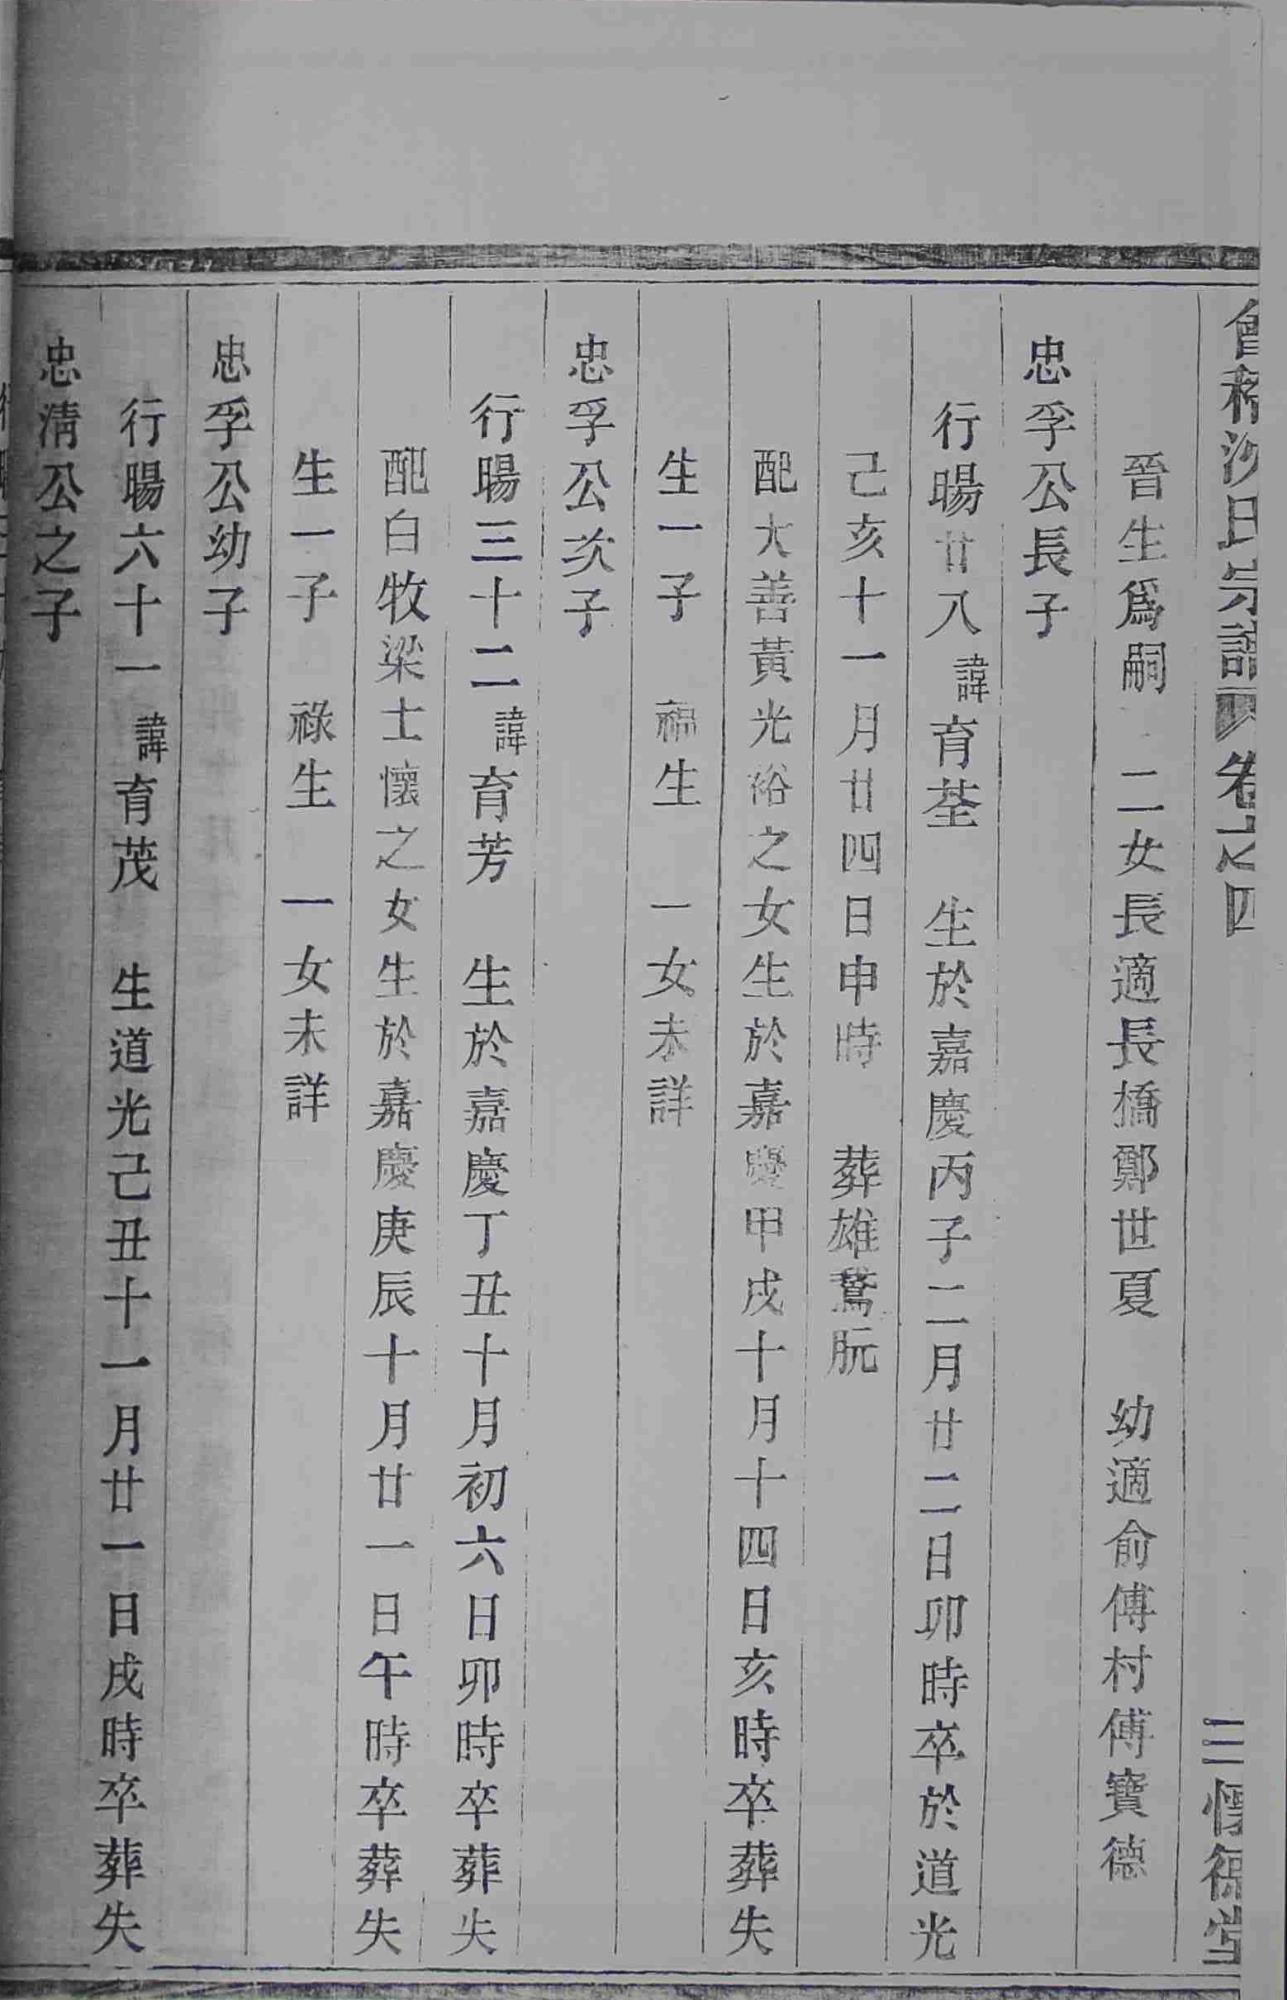 會稽沙氏宗譜 卷之四 三 懷德堂
晉生爲嗣 二女長適長橋鄭世夏 幼適俞傅村傅寶德
忠孚公長子
行暘廿八諱育荃 生於嘉慶丙子二月廿二日卯時卒於道光
己亥十一月廿四日申時 葬雄鵞阮
配大善黃光裕之女生於嘉慶甲戌十月十四日亥時卒葬失
生一子 福生 一女未詳
忠孚公次子
行暘三十二諱育芳 生於嘉慶丁丑十月初六日卯時卒葬失
配白牧梁士懷之女生於嘉慶庚辰十月廿一日午時卒葬失
生一子 祿生 一女未詳
忠孚公幼子
行暘六十一諱育茂 生道光己丑十一月廿一日戌時卒葬失
忠清公之子